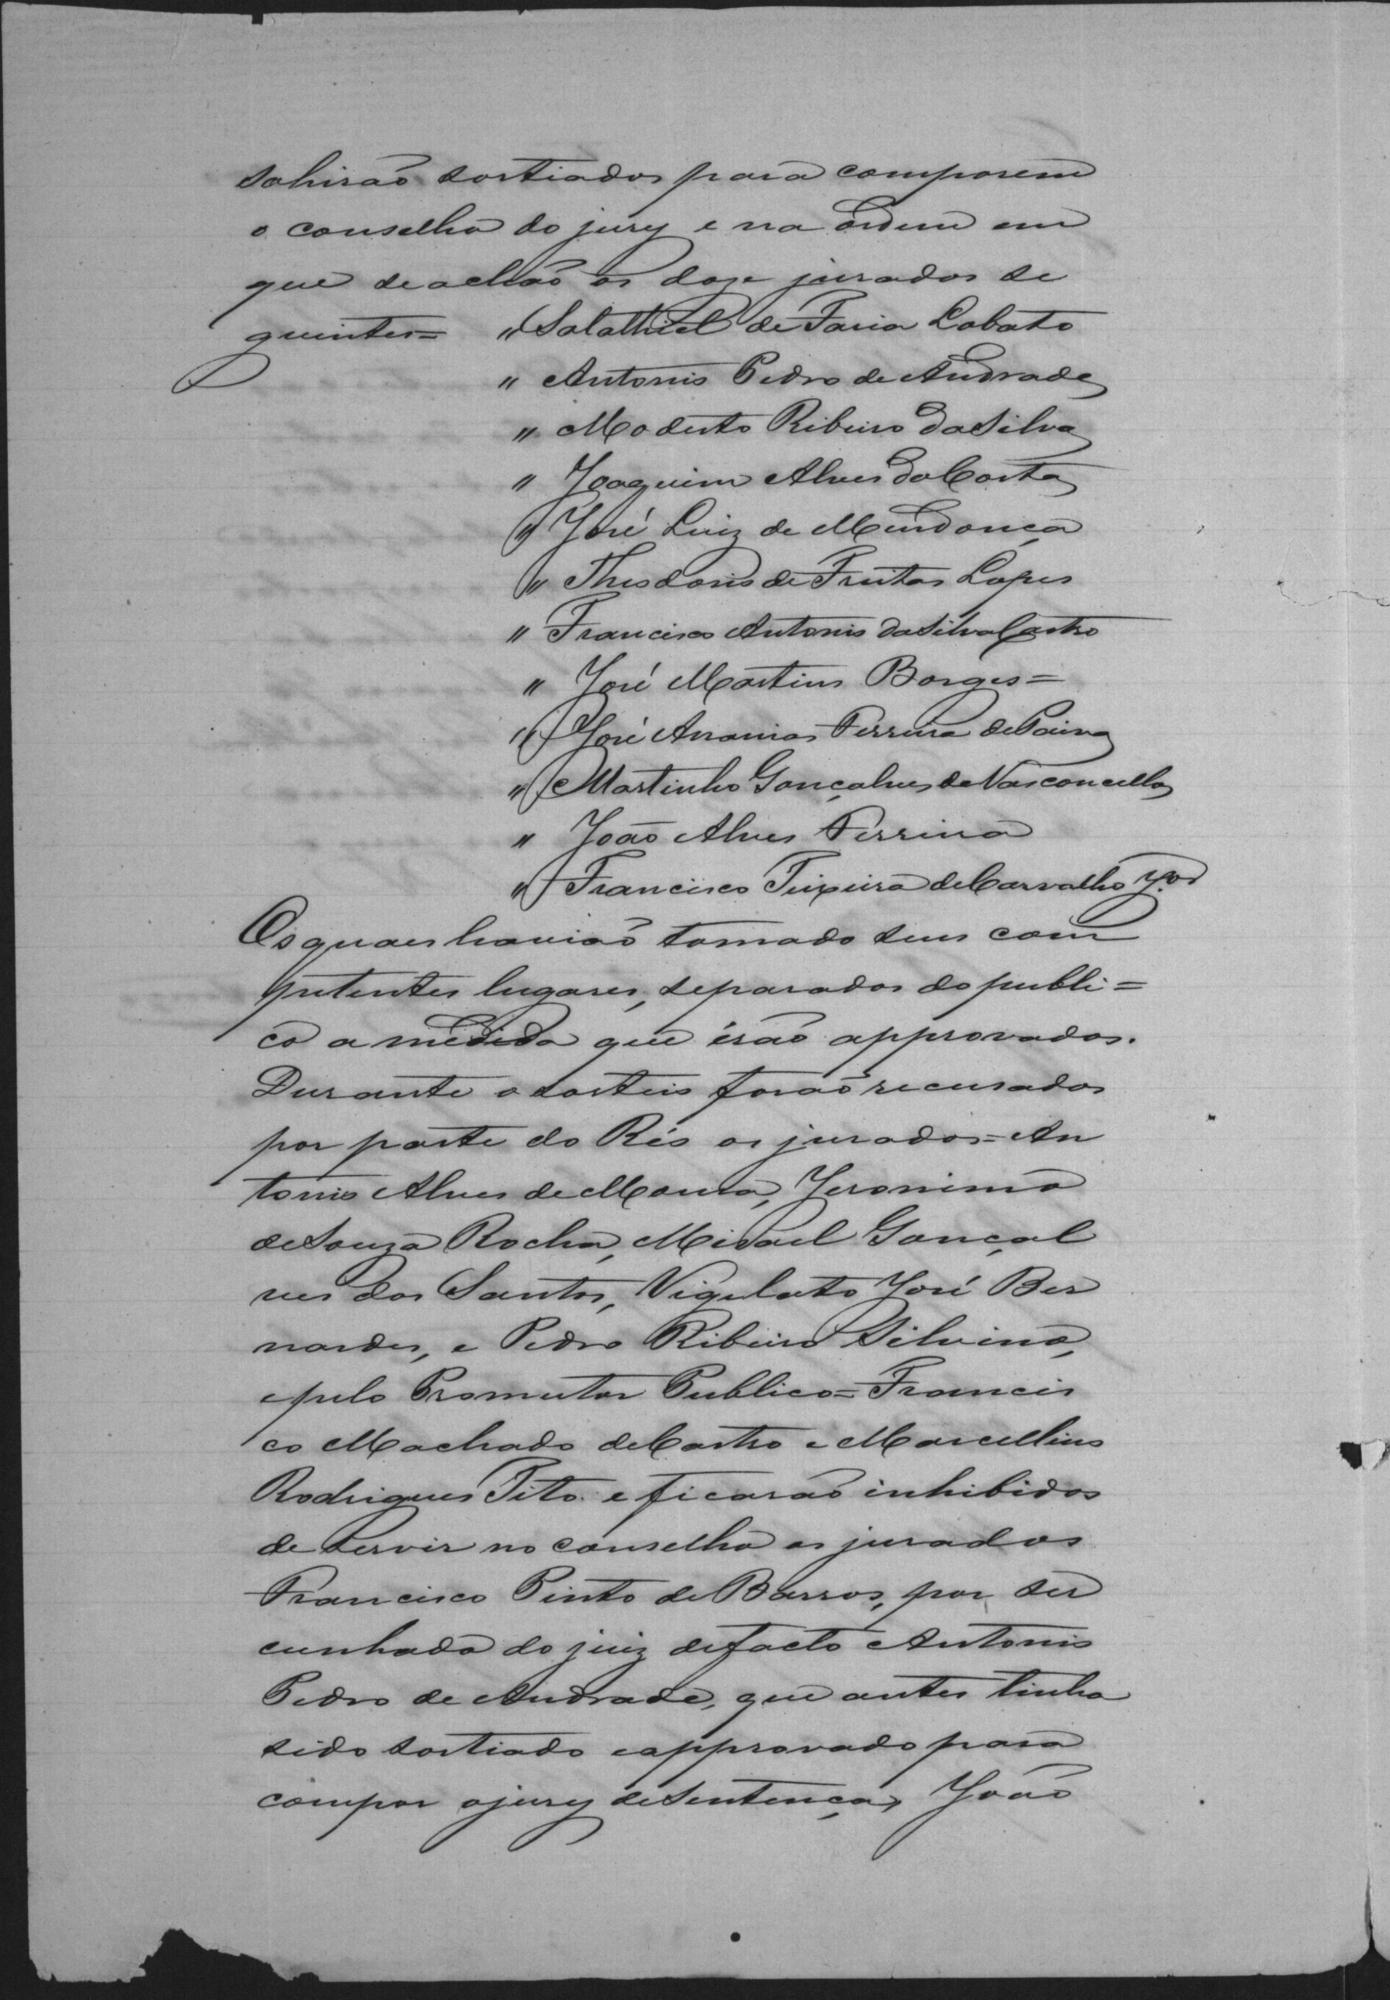 sahirão sortiados para comporem
o conselho do jury e na ordem em
que se achão os doze jurados se
guintes=
" Salathiel de Faria Lobato
" Antonio Pedro de Andrade
" Modesto Ribeiro da Silva
" Joaquim Alves da Costa
" José Luiz de Mendonça
" Theodorio de Freitas Lopes
" Francisco Antonio da Silva Castro
" José Martins Borges=
" José Ananias Ferreira de Paiva
" Martinho Gonçalves de Vasconcellos
" João Alves Ferreira
" Francisco Teixeira de Carvalho
Os quaes havião tomado seus com
petentes lugares, separados do publi=
co a medida que erão approvados.
Durante o sorteio forão recusados
por parte do Réo os jurados=An
tonio Alves de Moura, Jeronimo
de Souza Rocha, Misael Gonçal
ves dos Santos, Vigilato José Ber
nardes, e Pedro Ribeiro Silvino,
e pelo Promutor Publico=Francis
co Machado de Castro e Marcellino
Rodrigues Tito e ficarão inhibidos
de servir no conselho os jurados
Francisco Pinto de Barros, por ser
cunhado do juiz de facto Antonio
Pedro de Andrade, que antes tinha
sido sortiado e approvado para
compor o jury de sentença, João